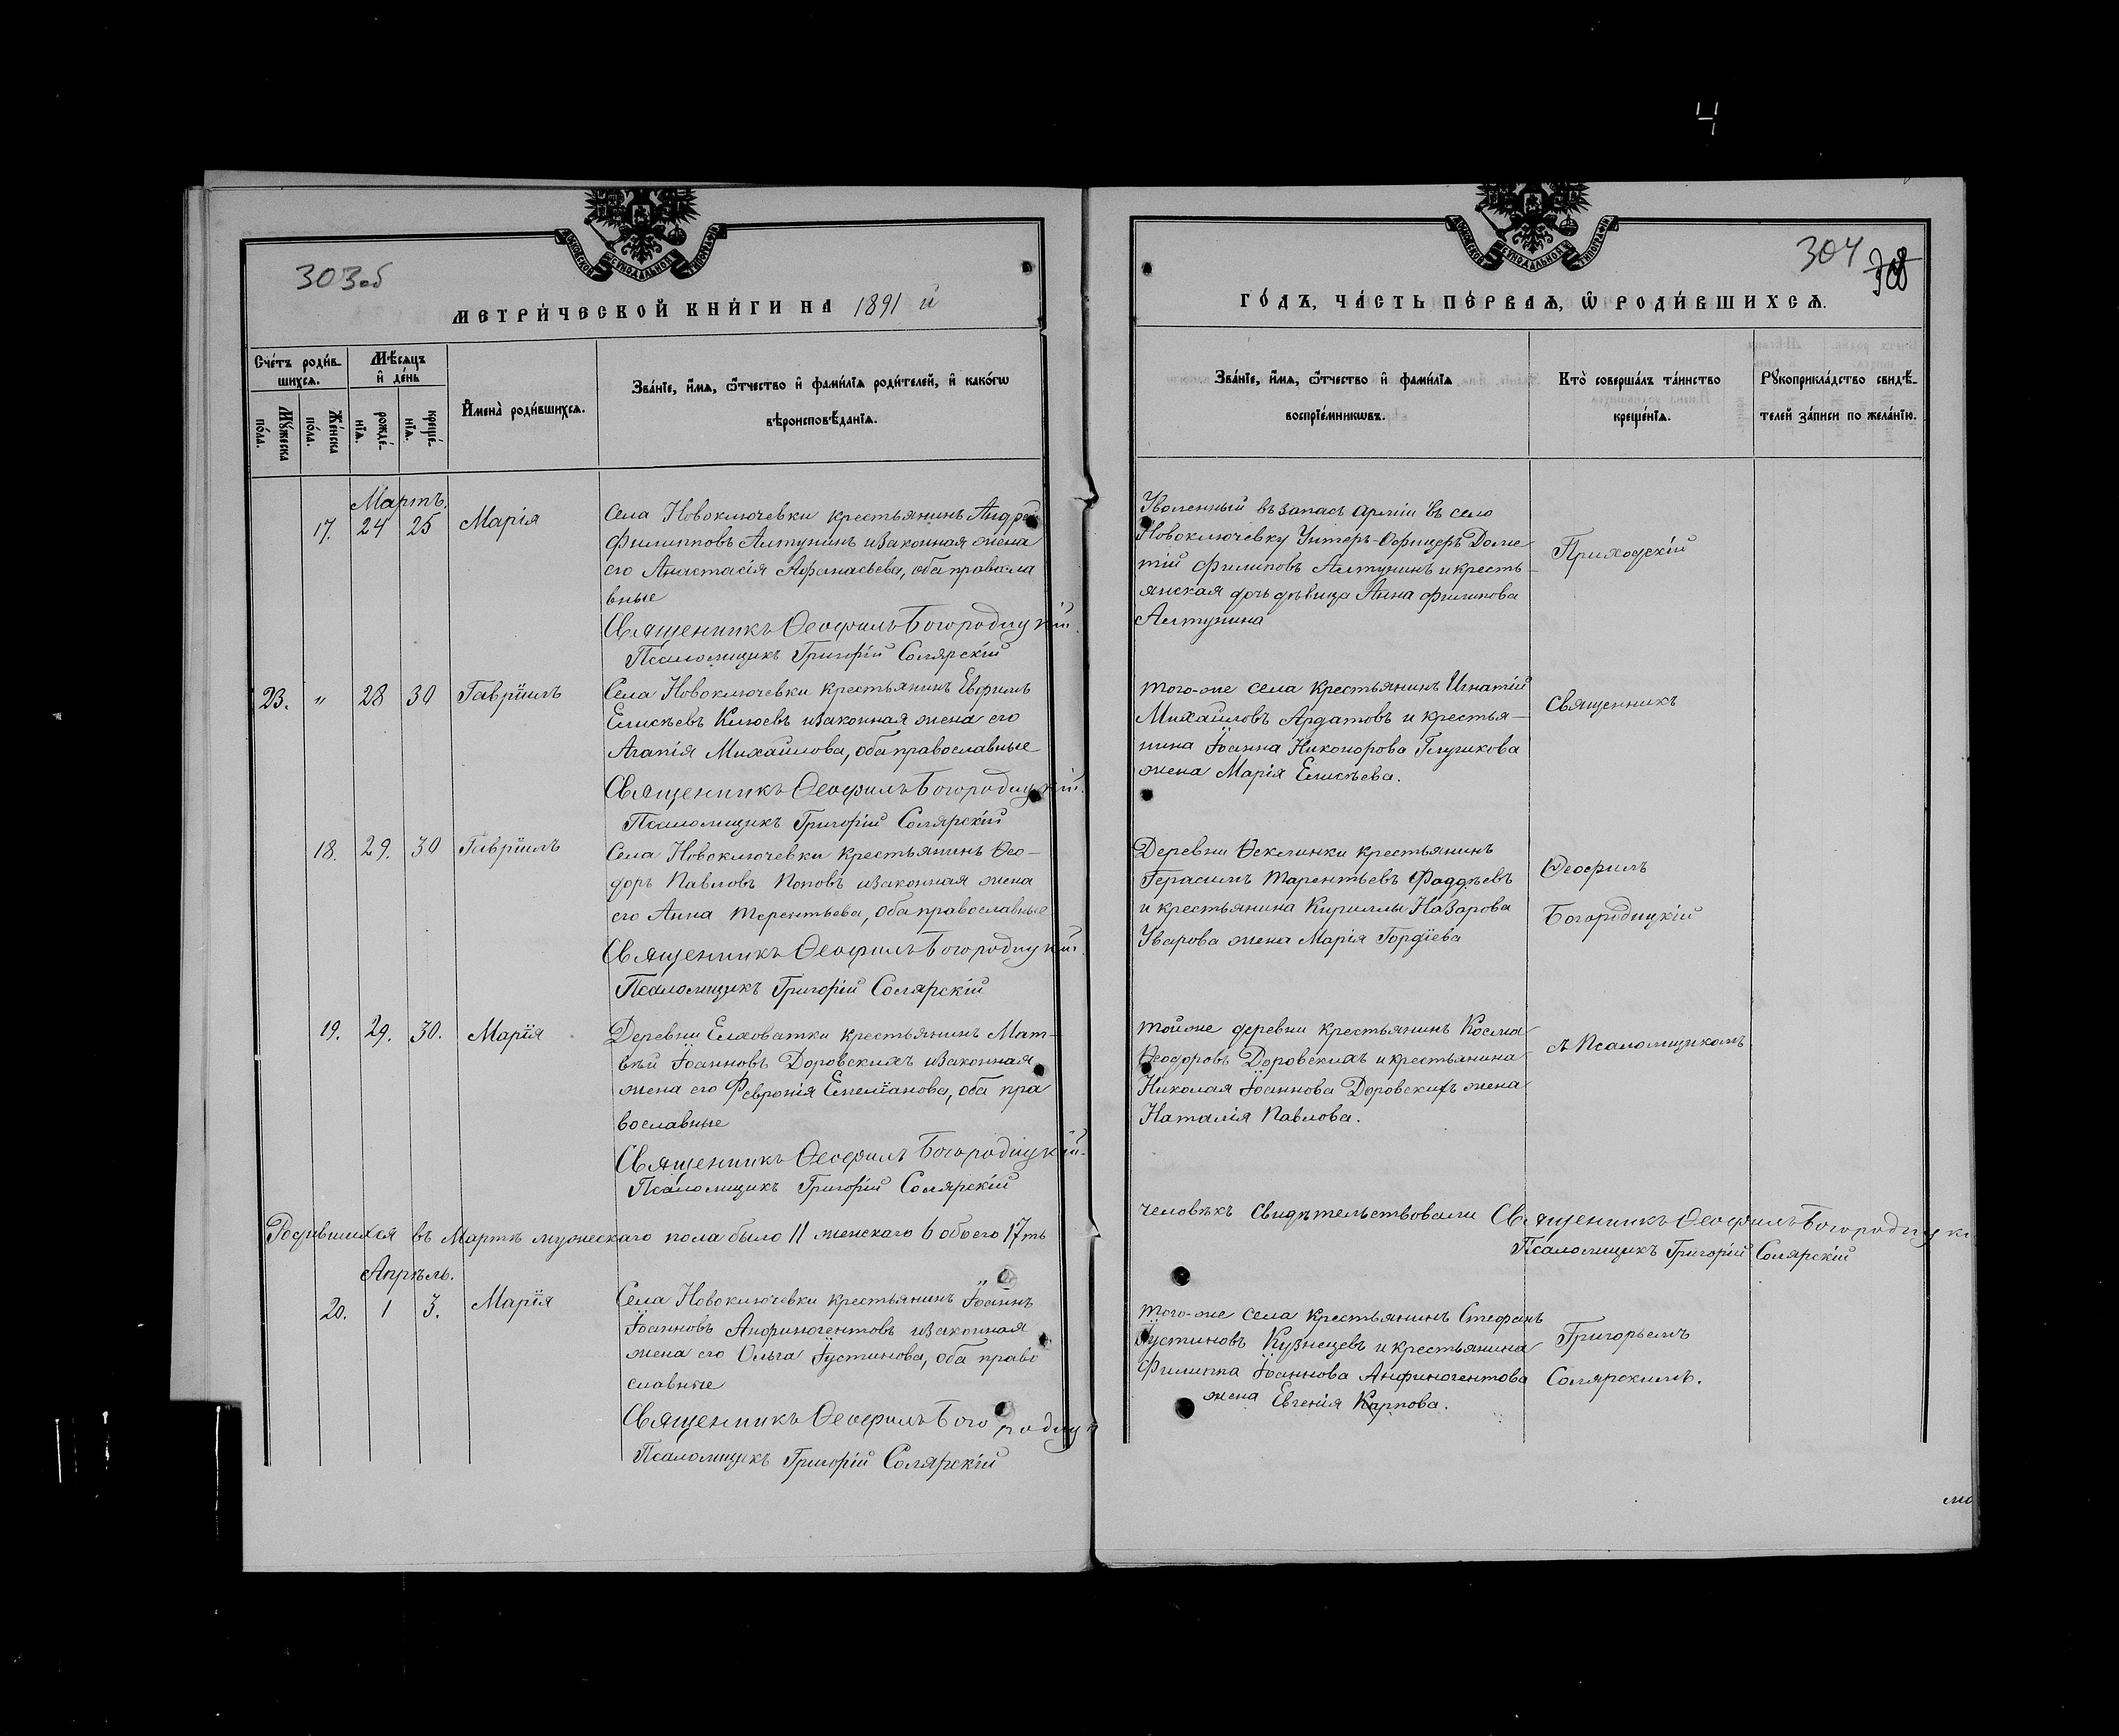 Ч
303об
МЕТРИ́ЧЕСКОЙ КНИ́ГИ НА 1891 й
Сче́тъ роди́в-
шихся.
Мѣ́сяцъ
и҆ де́нь
Мꙋ́жеска
по́ла.
Же́нска
по́ла.
рожде́-
нїѧ.
креще́-
нїѧ.
И҆мена̀ роди́вшихсѧ.
Зва́нїе, и҆́мѧ, ѻ҆́тчество и҆ фами́лїѧ роди́телей, и҆ како́гѡ
вѣроисповѣ́данїѧ.
Мартъ.
17. 24 25 Марія
Села Новоключевки крестьянинъ Андрей
Филипповъ Алтунинъ и законная жена
его Анастасія Афанасьева, оба правосла
вные
Священникъ Ѳеофилъ Богородицкій.
Псаломщикъ Григорій Солярскій
23. " 28 30 Гавріилъ
Села Новоключевки крестьянинъ Евфимъ
Елисѣевъ Клюевъ и законная жена его
Агапія Михайлова, оба православные
Священникъ Ѳеофилъ Богородицкій.
Псаломщикъ Григорій Солярскій
18. 29. 30 Гавріилъ
Села Новоключевки крестьянинъ Ѳео-
доръ Павловъ Поповъ и законная жена
его Анна Терентьева, оба православные
Священникъ Ѳеофилъ Богородицкій.
Псаломщикъ Григорій Солярскій
19. 29. 30. Марія
Деревни Елховатки крестьянинъ Мат-
вѣй Іоанновъ Доровскихъ и законная
жена его Февронія Емеліанова, оба пра
вославные
Священникъ Ѳеофилъ Богородицкій.
Псаломщикъ Григорій Солярскій
Родившихся въ Мартѣ мужескаго пола было 11 женскаго 6 обоего 17ть
Апрѣль.
20. 1 3. Марія
Села Новоключевки крестьянинъ Іоаннъ
Іоанновъ Анфиногентовъ и законная
жена его Ольга Іустинова, оба право
славные
Священникъ Ѳеофилъ Богородицк
Псаломщикъ Григорій Солярскій
304
ГО́ДЪ, ЧА́СТЬ ПЕ́РВАѦ, Ѡ҆ РОДИ́ВШИХСѦ.
Зва́нїе, и҆́мѧ, ѻ҆́тчество и҆ фами́лїѧ
воспрїе́мникѡвъ.
Кто̀ соверша́лъ та́инство
креще́нїѧ.
Рꙋкоприкла́дство свидѣ́-
телей за́писи по жела́нїю.
Уволенный въ запасъ арміи въ село
Новоключевку Унтеръ-Офицеръ Доме
тій Филиповъ Алтунинъ и кресть-
янская дочь дѣвица Анна Филипова
Алтунина
Приходскій
того-же села крестьянинъ Игнатій
Михайловъ Ардатовъ и крестья-
нина Іоанна Никонорова Глушкова
жена Марія Елисѣева.
Священникъ
Деревни Ѳеклинки крестьянинъ
Герасимъ Тарентьевъ Фаддѣевъ
и крестьянина Кириллы Назарова
Уварова жена Марія Гордіева
Ѳеофилъ
Богородицкій
той же деревни крестьянинъ Косма
Ѳеодоровъ Доровскихъ и крестьянина
Николая Іоаннова Доровскихъ жена
Наталія Павлова.
съ Псаломщикомъ
человѣкъ свидѣтельствовали Священникъ Ѳеофилъ Богородицкі
Псаломщикъ Григорій Солярскій
того-же села крестьянинъ Стефанъ
Іустиновъ Кузнецевъ и крестьянина
Филиппа Іоаннова Анфиногентова
жена Евгенія Карпова.
Григорьемъ
Солярскимъ.